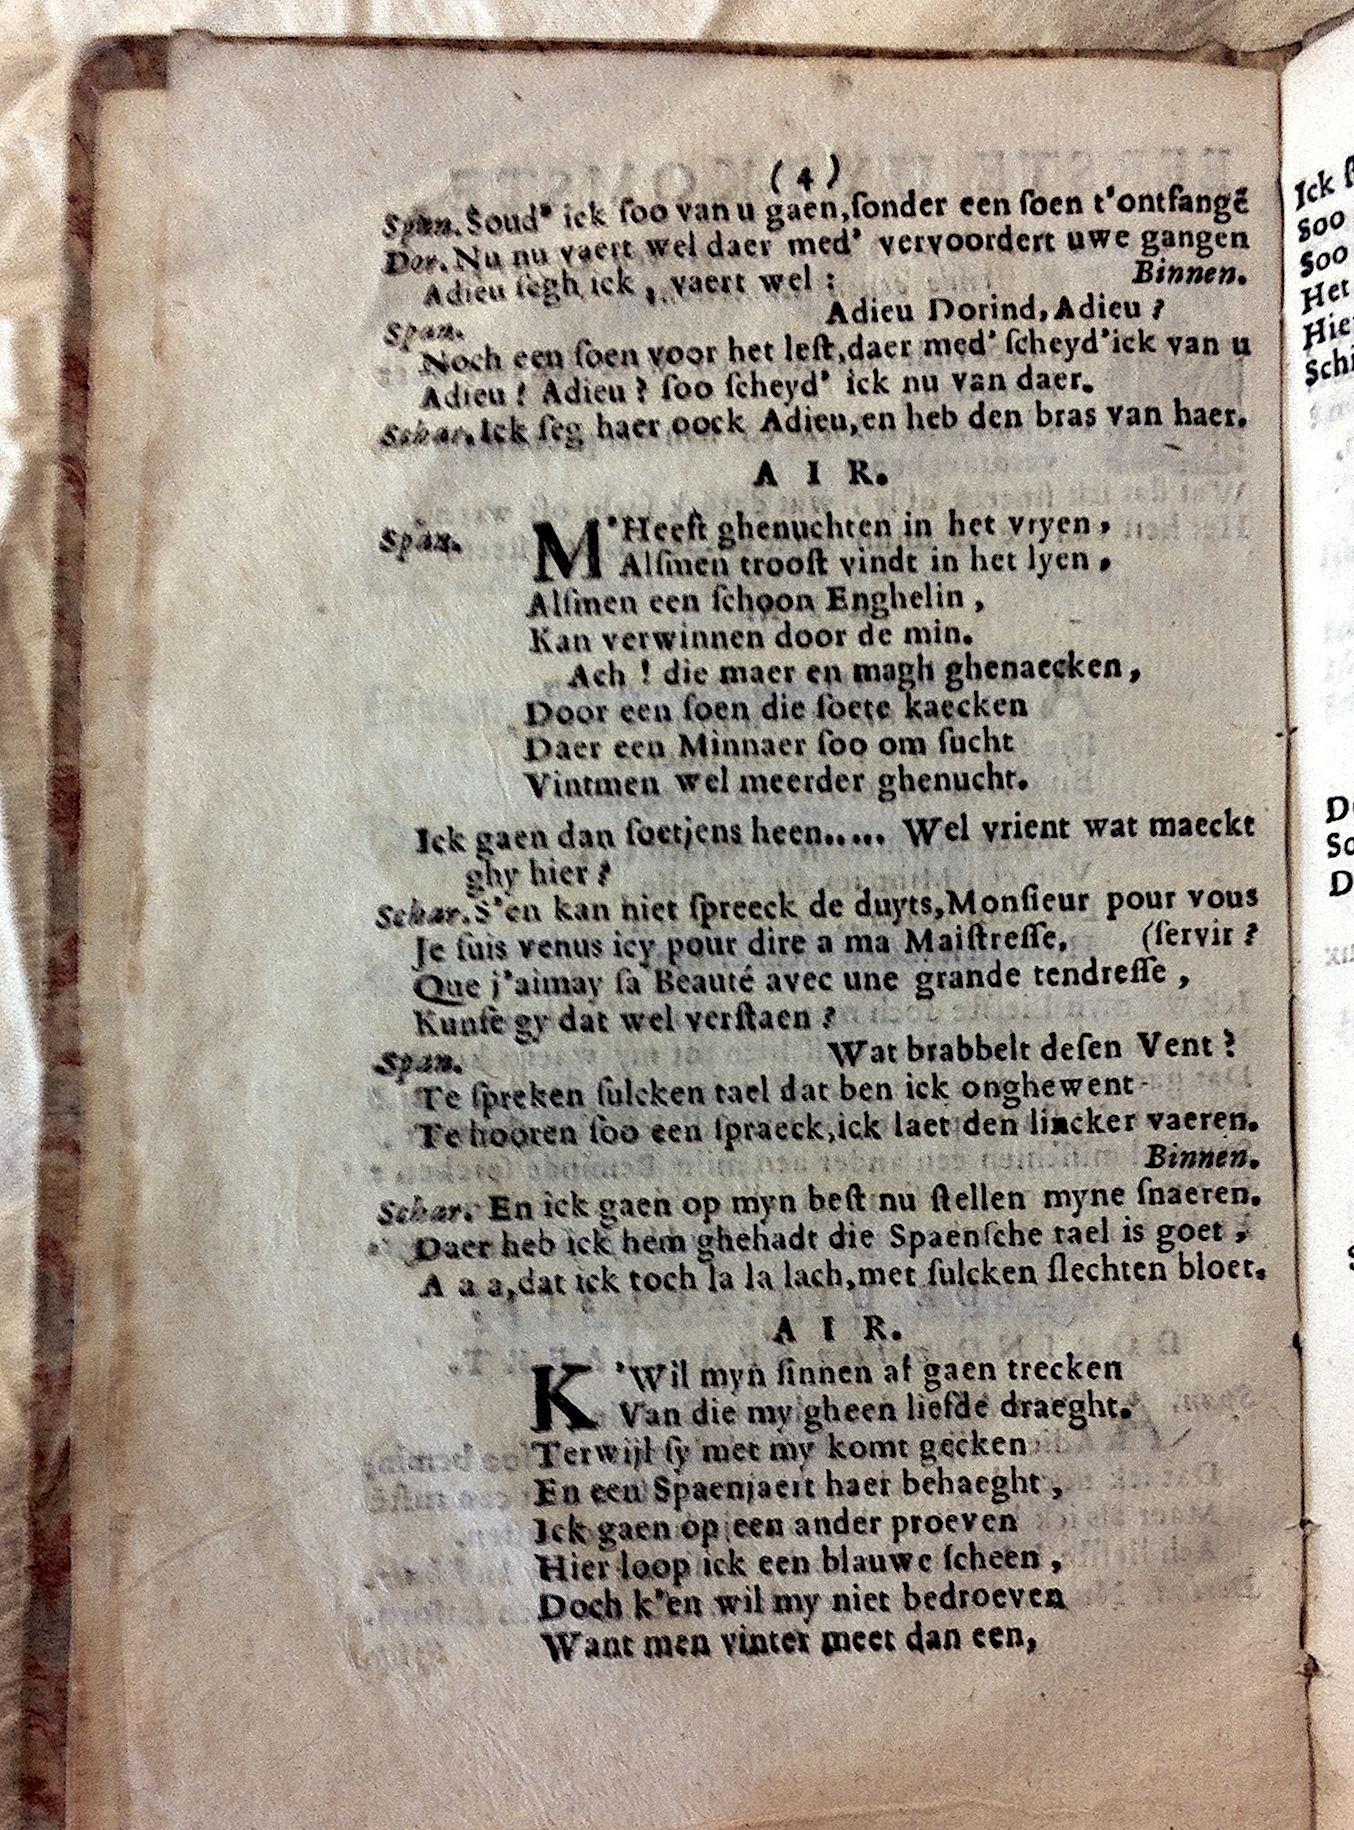 (4)
Span. Soud' ick ſoo van u gaen, ſonder een ſoen t'ontfangē
Dor. Nu nu vaert wel daer med' vervoordert uwe gangen
Adieu ſegh ick, vaert wel : Binnen.
Span. Adieu Dorind, Adieu ?
Noch een ſoen voor het leſt, daer med' ſcheyd'ick van u
Adieu ! Adieu ? ſoo ſcheyd' ick nu van daer.
Schar. Ick ſeg haer oock Adieu, en heb den bras van haer.
A I R.
Span. M'Heeft ghenuchten in het vryen,
Alſmen trooſt vindt in het lyen,
Alſmen een ſchoon Enghelin,
Kan verwinnen door de min.
Ach ! die maer en magh ghenaecken,
Door een ſoen die ſoete kaecken
Daer een Minnaer ſoo om ſucht
Vintmen wel meerder ghenucht.
Ick gaen dan ſoetjens heen..... Wel vrient wat maeckt
ghy hier ?
Schar. S'en kan niet ſpreeck de duyts, Monſieur pour vous
Je ſuis venus icy pour dire a ma Maiſtreſſe. (ſervir ?
Que j'aimay ſa Beauté avec une grande tendreſſe,
Kunſe gy dat wel verſtaen ?
Span. Wat brabbelt deſen Vent ?
Te ſpreken ſulcken tael dat ben ick onghewent
Te hooren ſoo een ſpraeck, ick laet den lincker vaeren.
Binnen.
Schar. En ick gaen op myn beſt nu ſtellen myne ſnaeren.
Daer heb ick hem ghehadt die Spaenſche tael is goet,
A a a, dat ick toch la la lach, met ſulcken ſlechten bloet.
A I R.
K'Wil myn ſinnen af gaen trecken
Van die my gheen liefde draeght.
Terwijl ſy met my komt gecken
En een Spaenjaert haer behaeght,
Ick gaen op een ander proeven
Hier loop ick een blauwe ſcheen,
Doch k'en wil my niet bedroeven
Want men vinter meet dan een,
Ick
Soo
Soo
Het